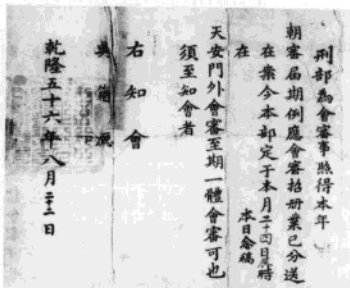 刑部為會審事照得本年
朝審届期例應會審招册業已分送
在案今本部定于本月二十四日辰時
本日念稿
在
天安門外會審至期一體會審可也
須至知會者
右知會
典籍廳
乾隆五十六年八月二十二日